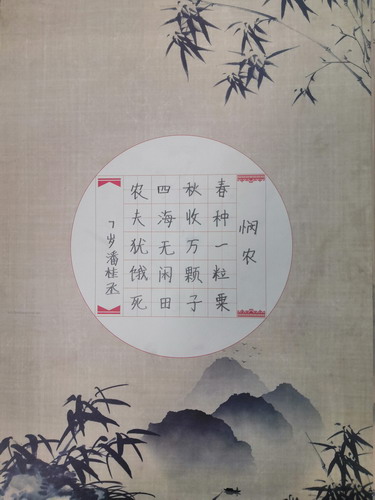 悯农
春种一粒粟
秋收万颗子
四海无闲田
农夫犹饿死
7岁潘桂丞